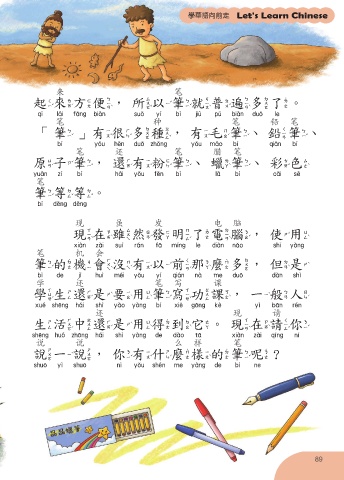 學華語向前走 Let's Learn Chinese
来 笔
起來方便，所以筆就普遍多了。
qǐ lái fāng biàn suǒ yǐ bǐ jiù pǔ biàn duō le
笔 种 笔 铅 笔
「筆」有很多種，有毛筆、鉛筆、
bǐ yǒu hěn duō zhǒng yǒu máo bǐ qiān bǐ
笔 还 笔 腊 笔
原子筆，還有粉筆、蠟筆、彩色
yuán zǐ bǐ hái yǒu fěn bǐ là bǐ cǎi sè
笔
筆等等。
bǐ děng děng
现 虽 发 电 脑
現在雖然發明了電腦，使用
xiàn zài suī rán fā míng le diàn nǎo shǐ yòng
笔 机 会
筆的機會沒有以前那麼多，但是
bǐ de jī huì méi yǒu yǐ qián nà me duō dàn shì
学 还 笔 写 课
學生還是要用筆寫功課，一般人
xué shēng hái shì yào yòng bǐ xiě gōng kè yì bān rén
还 现 请
生活中還是用得到它。現在請你
shēng huó zhōng hái shì yòng de dào tā xiàn zài qǐng nǐ
说 说 么 样 笔
說一說，你有什麼樣的筆呢？
shuō yì shuō nǐ yǒu shén me yàng de bǐ ne
89